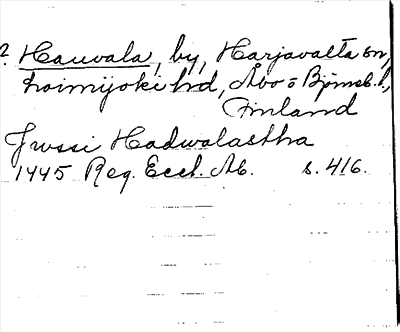 ? Hauvala, by, Harjavalta sn,
Loimijoki hd, Åbo o Björneb. l.,
Finland
Jwssi Hadwalastha
1445 Reg. Eccl. Ab. s. 416.